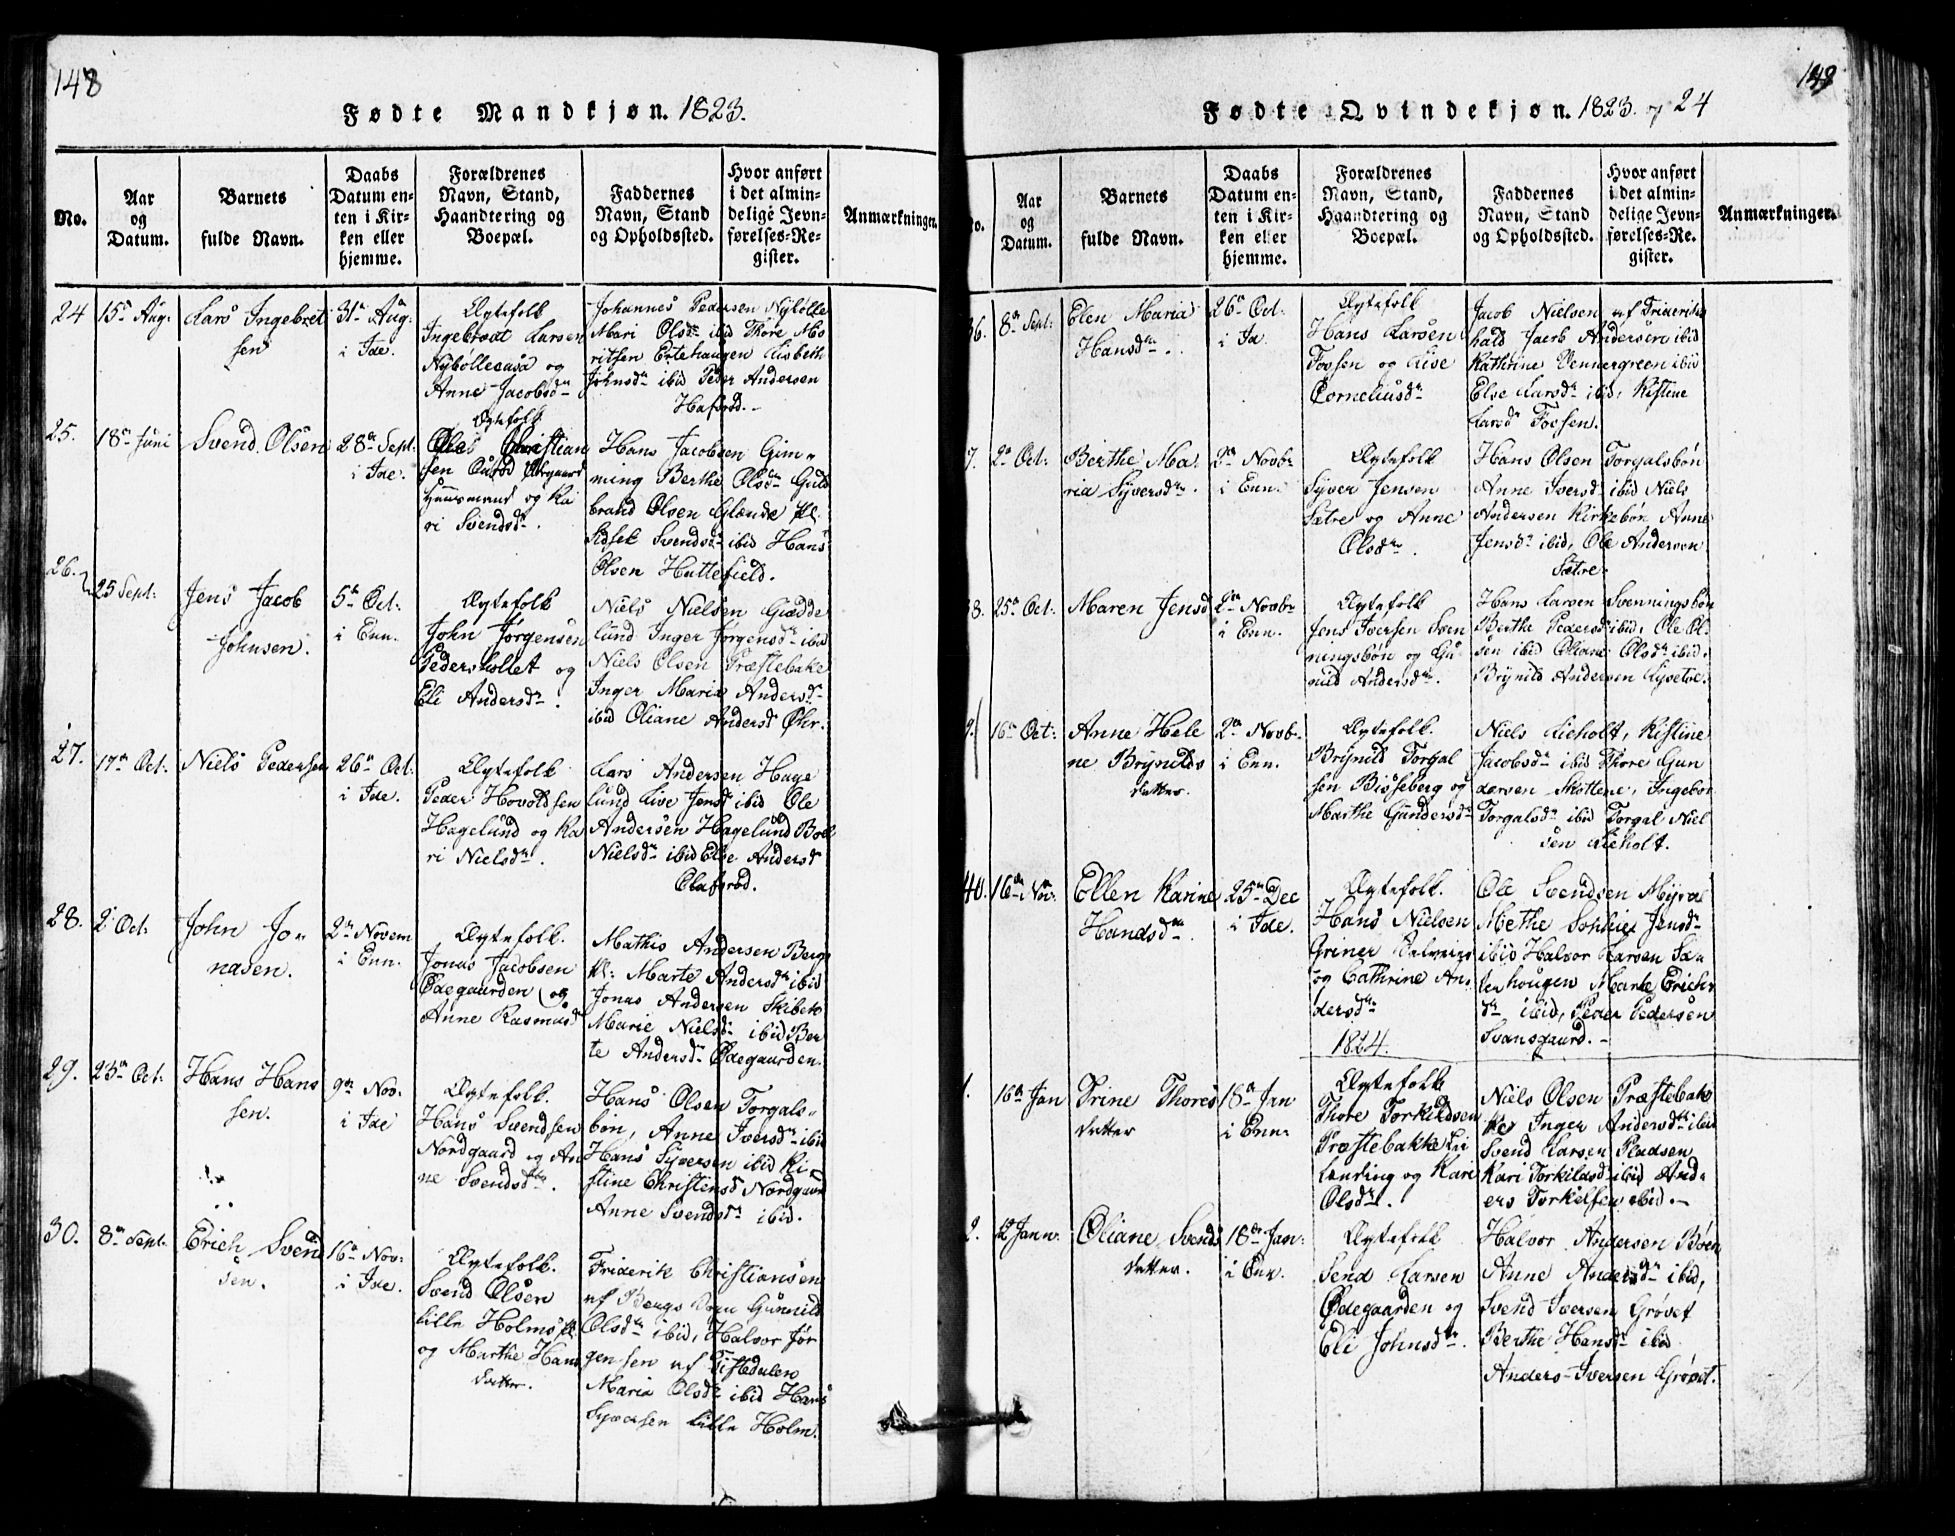 148
Fødte Mandkjøn. 1823.
No.
Aar
og
Datum.
Barnets
fulde Navn.
Daabs
Datum en-
ten i Kir-
ken eller
hjemme.
Forældrenes
Navn, Stand,
Haandtering og
Boepæl.
Faddernes
Navn, Stand
og Opholdssted.
Hvor anført
i det almin-
delige Jevn-
førelses-Re-
gister.
Anmærkninger.
24
15de Aug:
Lars Ingebret
sen
31te Aug:
i Ide.
Ægtefolk
Ingebret Larsen
Nybøllecasa og
Anne Jacobsdr
Johannes Pedersen Nybølle
Mari Olsdr ibid Thore Mo
ritsen Ertehaugen Lisbeth
Johnsdr ibid Peder Andersen
Hafsrød.
25.
18de Juni
Svend Olsen
28de Sept:
i Ide.
Ægtefolk
Ole Christian
sen
Huusmand og Ka
ri Svendsdr.
Hans Jacobsen Gim-
ming Berthe Olsdr Guld
brand Olsen Glænde Pl.
Sidsel Svendsdr ibid Hans
Olsen Huttefield.
26.
25 Sept:
Jens Jacob
Johnsen.
5te Oct:
i Enn.
Ægtefolk
John Jørgensen
Pederskollet og
Eli Andersdr.
Niels Nielsen Giædde
lund Inger Jørgensdr ibid
Niels Olsen Præstebake
Inger Maria Andersdr
ibid Oliane Andersdr Ohr.
27.
17de Oct:
Niels Pedersen
26de Oct:
i Ide.
Ægtefolk
Peder Hovoldsen
Hagelund og Ka
ri Nielsdr.
Lars Andersen Hage
lund Live Jensdr ibid Ole
Andersen Hagelund Boel
Nielsdr ibid Else Andersdr
Olafsrød.
28.
2 Oct:
John Jo-
nasen.
2den Novem
i Enn.
Ægtefolk.
Jonas Jacobsen
Ødegaarden og
Anne Rasmusdr
Mathis Andersen Berg
Pl: Marte Andersdr ibid
Jonas Andersen Skibek
Marie Nielsdr ibid Ber
te Andersdr Ødegaarden.
29.
23de Oct:
Hans Hans
sen.
9de Nov.
i Ide
Ægtefolk.
Hans Svendsen
Nordgaard og An
ne Svendsdtr.
Hans Olsen Torgals-
bøn, Anne Iversdr ibid
Hans Syversen ibid Ki-
stine Christensdr Nordgaard
Anne Svendsdr ibid.
30.
8de Sept.
Erich Svend
sen.
16de Nov:
i Ide.
Ægtefolk.
Svend Olsen
Lille Holms Pl
og Marthe Hans
datter.
Friderik Christiansen
af Bergs Sogn Gunnild
Olsdr ibid, Halvor Jør
gensen af Tistedalen
Maria Olsdr ibid Hans
Syversen Lille Holm.
Fødte Qvindekjøn. 1823. og 24
No.
Aar
og
Datum.
Barnets
fulde Navn.
Daabs
Datum en-
ten i Kir-
ken eller
hjemme.
Forældrenes
Navn, Stand,
Haandtering og
Boepæl.
Faddernes
Navn, Stand
og Opholdssted.
Hvor anført
i det almin-
delige Jevn-
førelses-Re-
gister.
Anmærkninger.
36.
8de Sept:
Elen Maria
Hansdr.
26de Oct:
i Id.
Ægtefolk
Hans Larsen
Fossen og Lise
Corneliusdr
Jacob Nielsen af Friderichs
hald Jacob Andersen ibid
Kathrine Vennergreen ibid
Else Larsdr ibid, Kistine
Larsdr Fossen.
7.
2de Oct:
Berthe Ma
ria Syversdr.
2den Novbr
i Enn.
Ægtefolk
Syver Jensen
Sætre og Anne
Olsdr.
Hans Olsen Torgalsbøn
Anne Iversdr ibid Niels
Andersen Kirkebøn Anne
Jensdr ibid, Ole Andersen
Sætre.
38.
25de Oct:
Maren Jensdr
2den Novbr
i Enn.
Ægtefolk
Jens Iversen Sven
ningsbøn og Gu
nild Andersdr.
Hans Larsen Svenningsbøn
Berthe Pedersdr ibid, Ole Ol
sen ibid Oliane Olsdr ibid.
Brynild Andersen Lysetre.
9.
16de Oct:
Anne Hele
ne Brynilds
datter.
2den Novb.
i Enn.
Ægtefolk.
Brynild Torgal
sen Bisseberg og
Marthe Gundersdr
Niels Lieholt, Kistine
Jacobsdr ibid Thore Gun
dersen Skottene, Ingebor
Torgalsdr ibid Torgal Niel
sen Lieholt.
40.
16de Nov:
Ellen Karine
Handsdr.
25de Dec
i Ide.
Ægtefolk.
Hans Nielsen
Griner
og Cathrine An
dersdr
Ole Svendsen Myral
Methe Sophie Jensdr
ibid Halvor Larsen Sæ
terhougen Marte Erichs
dr ibid, Peder Pedersen
Svansgaard.
1824.
1.
16de Jan
Trine Thores
datter
18de Jan
i Enn:
Ægtefolk
Thore Torkildsen
Præstebakke Lei
lending og Kari
Olsdr.
Niels Olsen Præstebak
ke Inger Andersdr ibid
Svend Larsen Pladsen
Kari Torkildsdr ibid And
ers Torkelsen ibid.
2.
12 Jann.
Oliane Svends
datter.
18de Jan:
i Enn.
Ægtefolk
Send Larsen
Ødegaarden og
Eli Johnsdr.
Halvor Andersen Bøen
Anne Andersdr ibid,
Svend Iversen Grøvet
Berthe Hansdr ibid
Anders Iversen Grøvet.